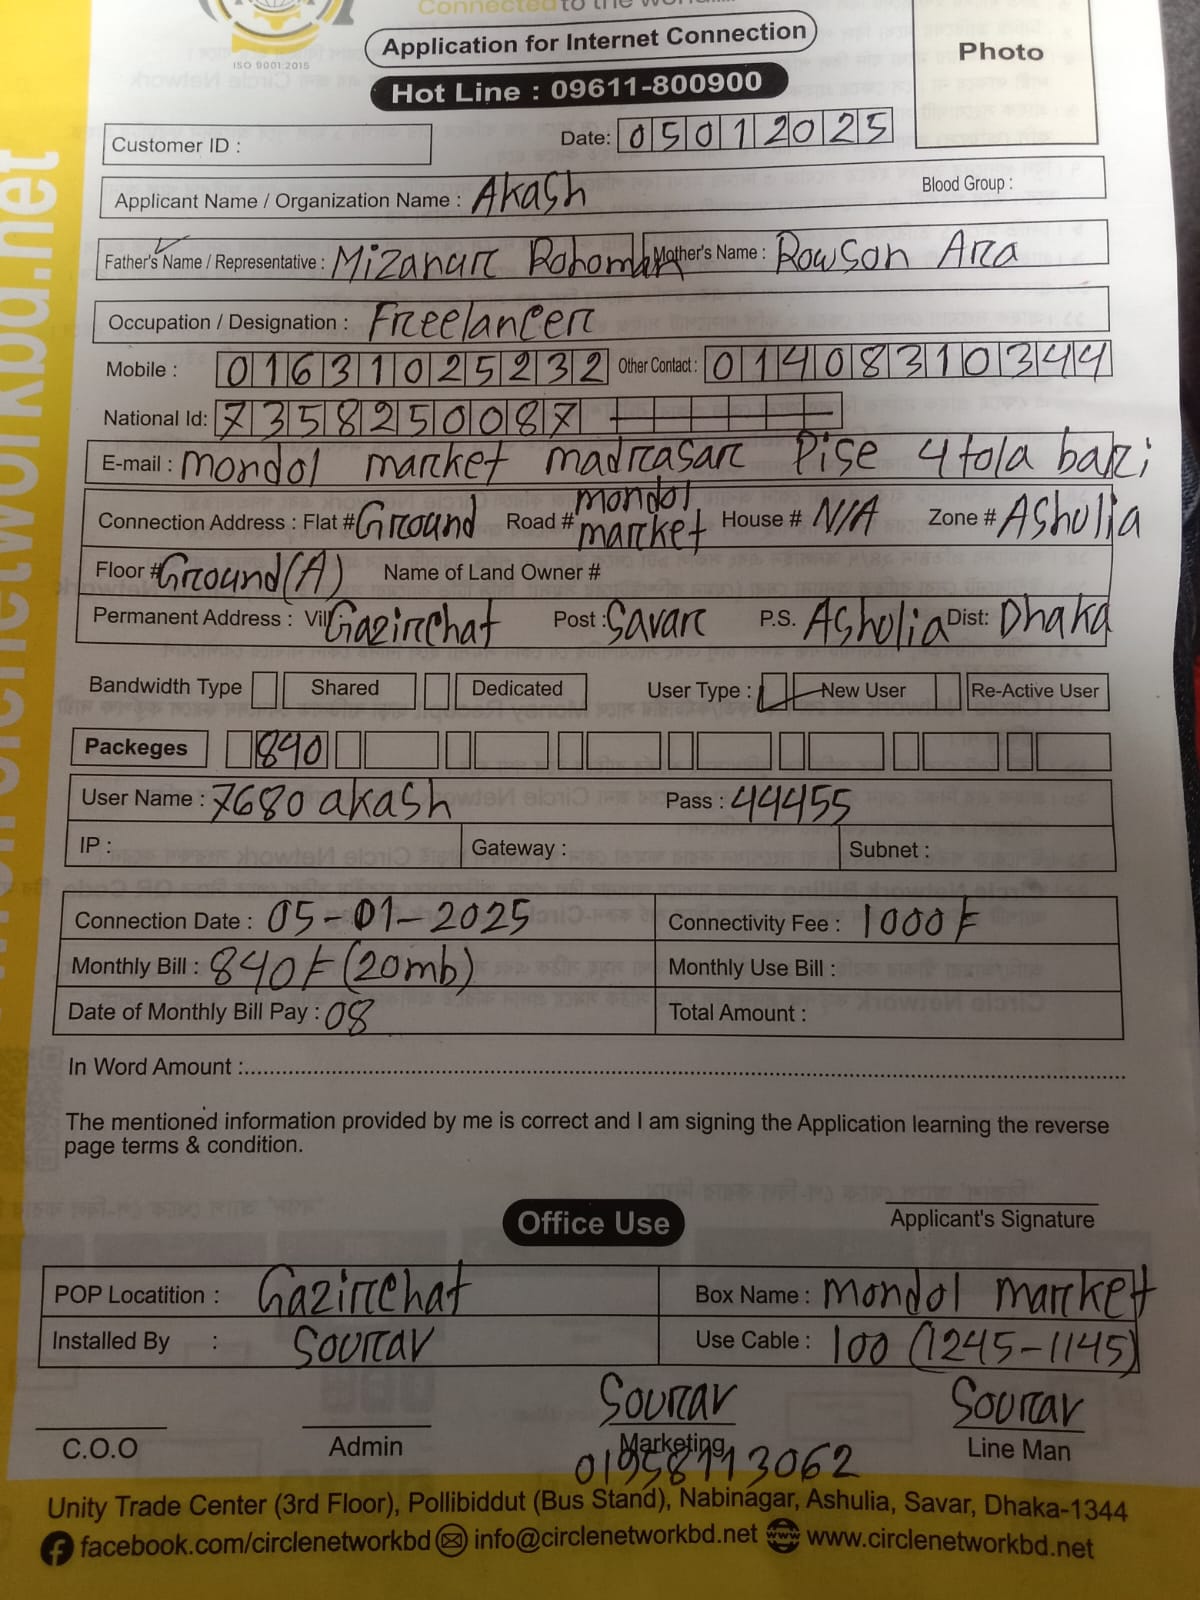 Connected to the world.....
ISO 9001:2015
Application for Internet Connection
Hot Line : 09611-800900
Photo
Customer ID :
Date: 05012025
Applicant Name / Organization Name : Akash
Blood Group :
Father's Name / Representative : Mizanar Rohoman
Mother's Name : Rowson Ara
Occupation / Designation : Freelancer
Mobile : 01631025232 Other Contact : 01408310344
National Id: 7358250087
E-mail : mondol market madrasar Pise 4 tola bari
Connection Address : Flat # Ground Road # mondol market House # N/A Zone # Ashulia
Floor # Ground (A) Name of Land Owner #
Permanent Address : Vill Gazirchat Post : Savar P.S. Ashulia Dist: Dhaka
Bandwidth Type Shared Dedicated User Type : New User Re-Active User
Packeges 840
User Name : 7680akash Pass : 44455
IP : Gateway : Subnet :
Connection Date : 05-01-2025 Connectivity Fee : 1000৳
Monthly Bill : 840৳ (20mb) Monthly Use Bill :
Date of Monthly Bill Pay : 08 Total Amount :
In Word Amount :
The mentioned information provided by me is correct and I am signing the Application learning the reverse
page terms & condition.
Applicant's Signature
Office Use
POP Locatition : Gazirchat Box Name : Mondol market
Installed By : Sourav Use Cable : 100 (1245-1145)
Sourav Sourav
C.O.O Admin Marketing Line Man
01958113062
Unity Trade Center (3rd Floor), Pollibiddut (Bus Stand), Nabinagar, Ashulia, Savar, Dhaka-1344
facebook.com/circlenetworkbd info@circlenetworkbd.net www.circlenetworkbd.net